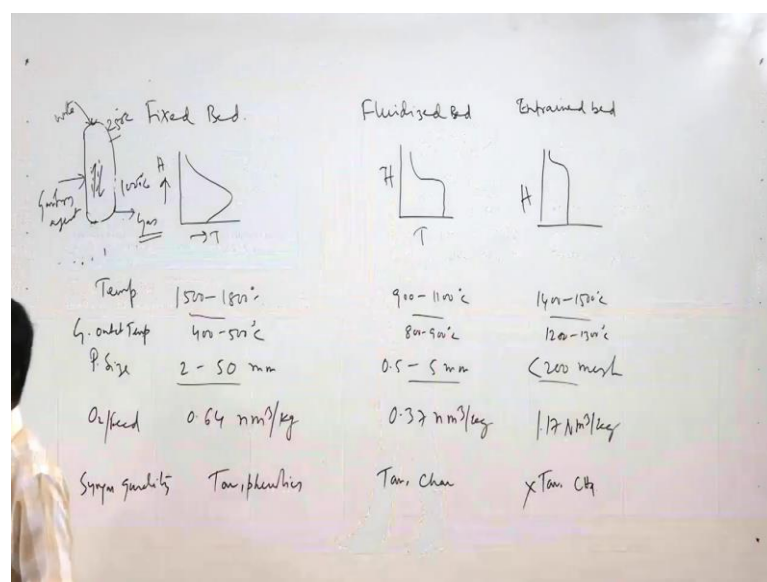 waste
25°C Fixed Bed.
Fluidized Bed
Entrained bed
H
T
Gas
H
T
H
Temp 1500-1800° 900-1100°C 1400-1500°C
G. outlet Temp 400-500°C 800-900°C 1200-1300°C
P. Size 2 - 50 mm 0.5 - 5 mm <200 mesh
O2/feed 0.64 nm3/kg 0.37 nm3/kg 1.17 Nm3/kg
Syngas quality Tar, phenolics Tar, Char x Tar. CH4